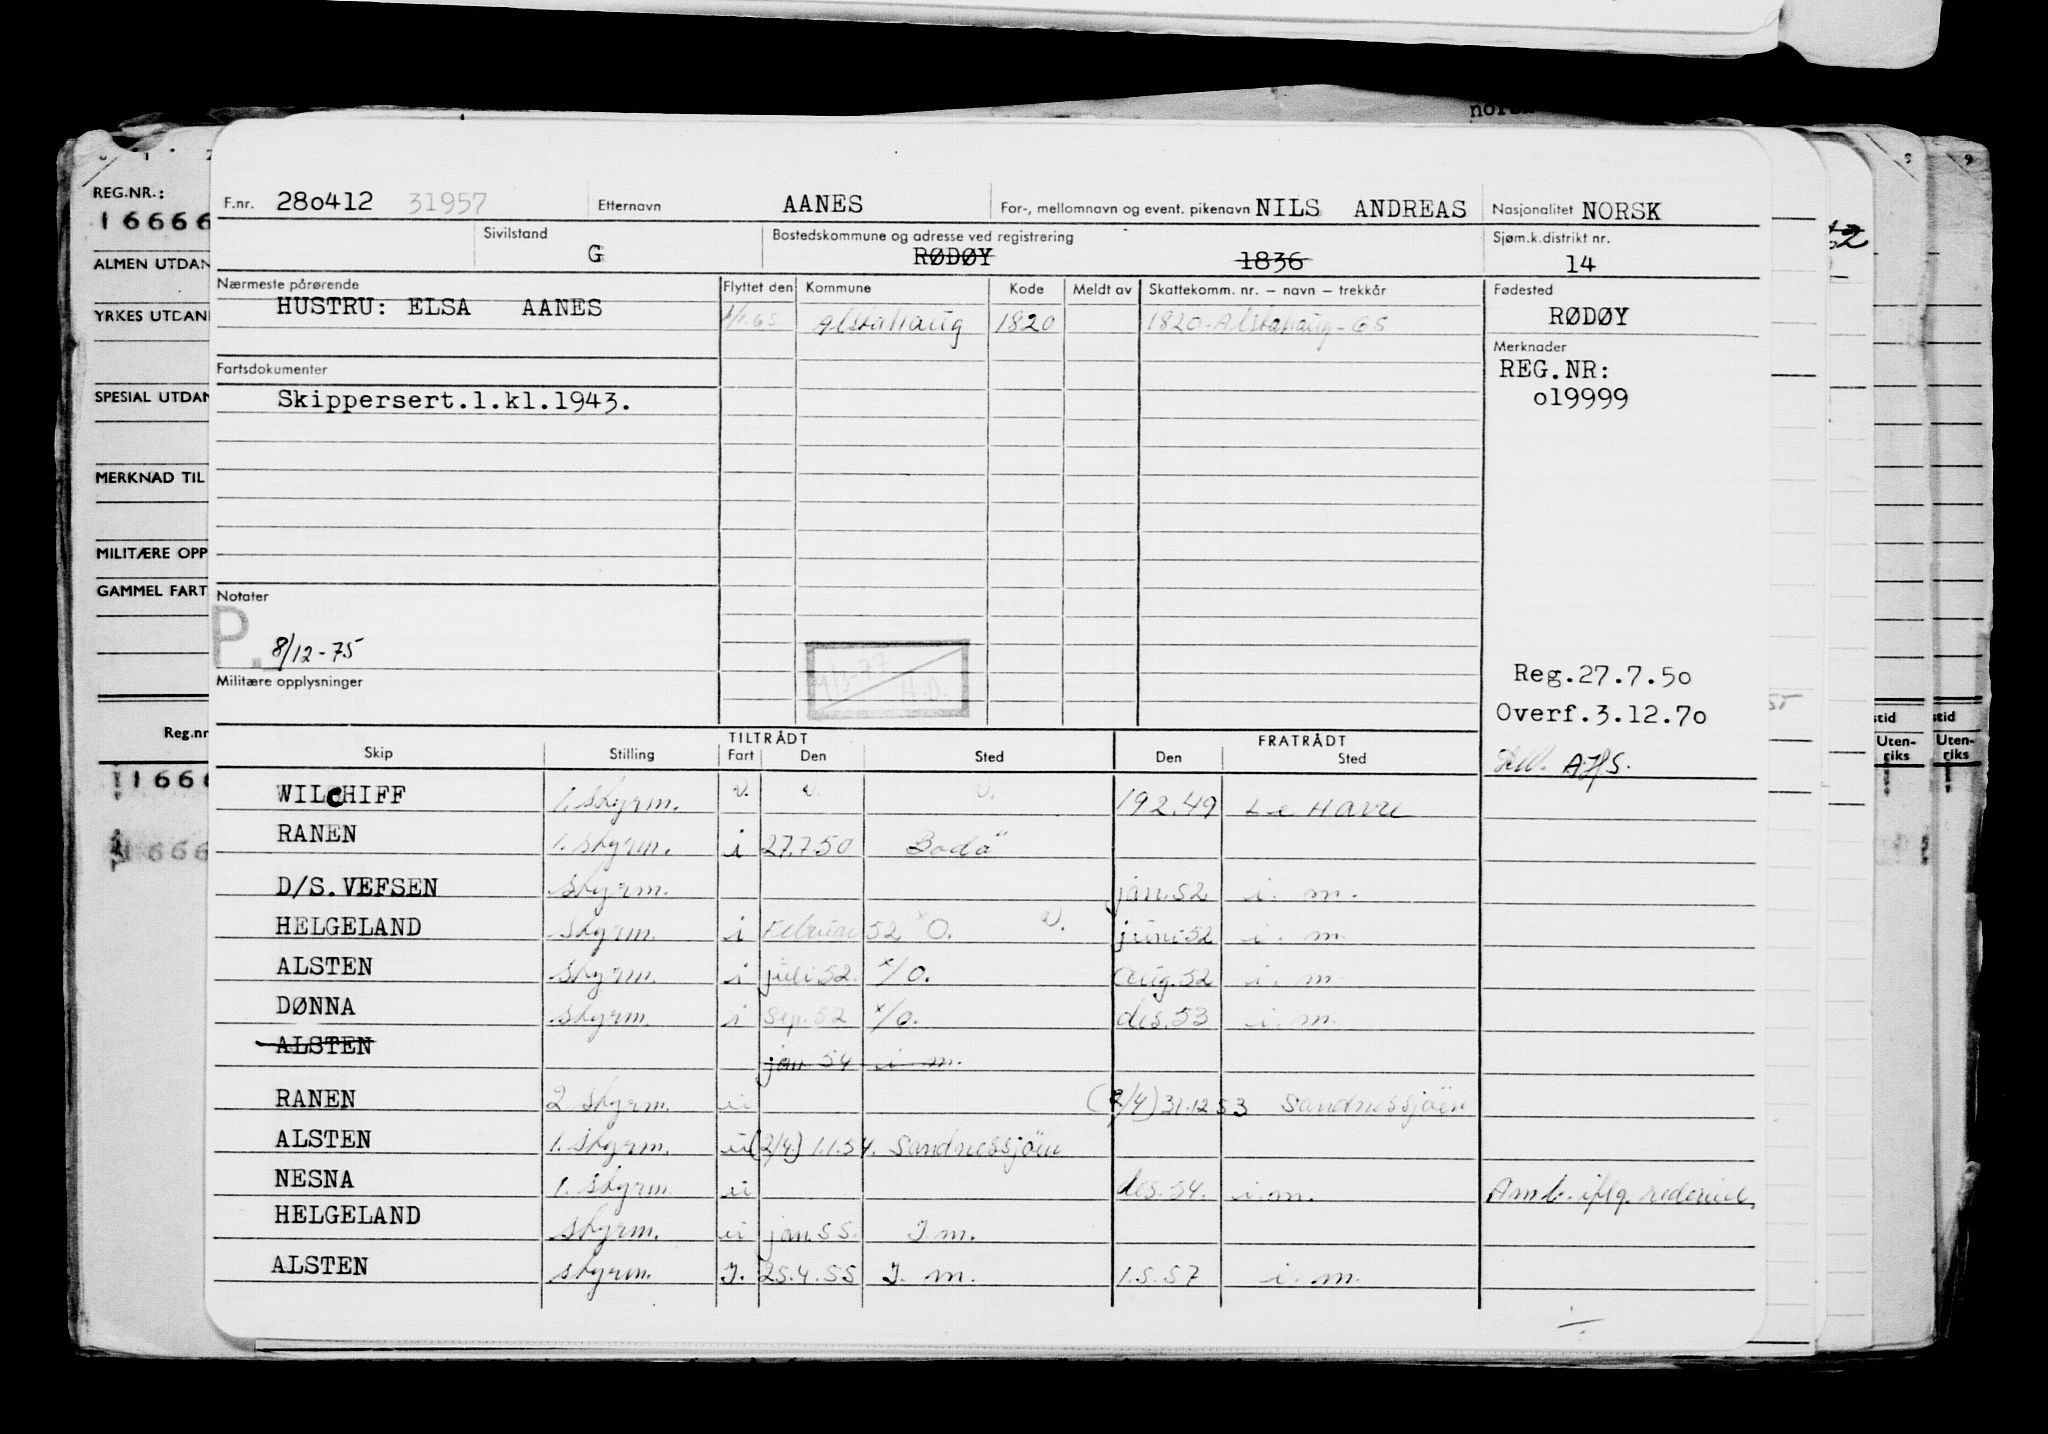 nors
REG.NR.:
16666
ALMEN UTDAN
YRKES UTDAN
SPESIAL UTDAN
MERKNAD TIL
MILITÆRE OPP
GAMMEL FART
Reg.nr
1666
1666
F.nr. 28o412 31957 Etternavn AANES For-, mellomnavn og event. pikenavn NILS ANDREAS Nasjonalitet NORSK
Sivilstand G Bostedskommune og adresse ved registrering RØDØY 1836 Sjøm.k.distrikt nr. 14
Nærmeste pårørende Flyttet den Kommune Kode Meldt av Skattekomm. nr. – navn – trekkår Fødested
HUSTRU: ELSA AANES Alstahaug 1820 1820-Alstahaug-65 RØDØY
Fartsdokumenter Merknader
Skippersert.1.kl.1943. REG.NR:
o19999
Notater
P. 8/12-75
Militære opplysninger
H.O.
Reg.27.7.5o
Overf.3.12.7o
A.H.S.
Skip Stilling TILTRÅDT Fart Den Sted FRATRÅDT Den Sted
WILCHIFF 1. styrm. v. v. v. 192.49 Le Havre
RANEN 1. styrm. i 27.7.50 Bodö
D/S.VEFSEN styrm. jan.52 i. m.
HELGELAND styrm. i Februar 52 x O. v. juni 52 i. m.
ALSTEN styrm. i juli 52. x/o. aug.52 i. m
DØNNA styrm. i Sep.52 x/o. des.53 i.m.
ALSTEN jan 54 i m.
RANEN 2 styrm. ii (2/4) 31.12.53 Sandnessjöen
ALSTEN 1. styrm. ii (2/4.) 1.1.54. Sandnessjöen
NESNA 1. styrm ii des.54. i.m. Amb. iflg. rederiet.
HELGELAND styrm. ii jan.55. I m.
ALSTEN styrm. I. 25.4.55 I. m. 1.5.57 i. m.
stid
Uten-
riks
stid
Uten-
riks